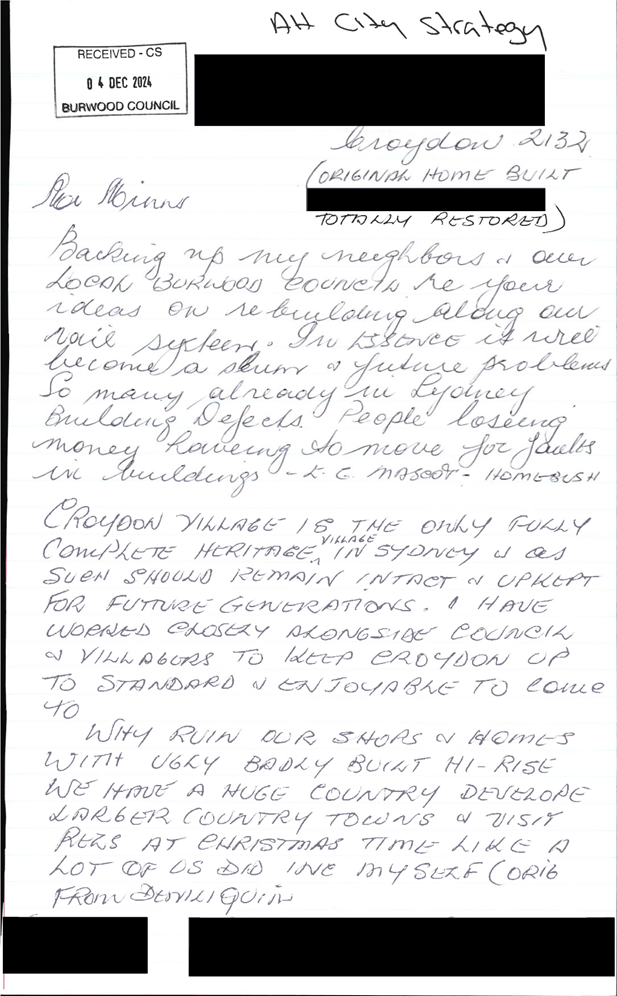 AH City Strategy
RECEIVED - CS
04 DEC 2024
BURWOOD COUNCIL
Croydon 2132
(ORIGINAL HOME BUILT
TOTALLY RESTORED)
Minns
Backing up my neighbors & our
LOCAL BURWOOD COUNCIL re your
ideas on rebuilding along our
rail system. In ESSENCE it will
become a slum & future problems
So many already in Sydney
Building Defects. People loseing
money haveing to move for faults
in buildings - E.G. MASCOT - HOMEBUSH
CROYDON VILLAGE IS THE ONLY FULLY
COMPLETE HERITAGE VILLAGE IN SYDNEY & as
SUCH SHOULD REMAIN INTACT & UPKEPT
FOR FUTURE GENERATIONS. I HAVE
WORKED CLOSELY ALONGSIDE COUNCIL
& VILLAGERS TO KEEP CROYDON UP
TO STANDARD & ENJOYABLE TO COME
TO
WHY RUIN OUR SHOPS & HOMES
WITH UGLY BADLY BUILT HI-RISE
WE HAVE A HUGE COUNTRY DEVELOPE
LARGER COUNTRY TOWNS & VISIT
RELS AT CHRISTMAS TIME LIKE A
LOT OF US DID INC MYSELF (ORIG
FROM DENILIQUIN